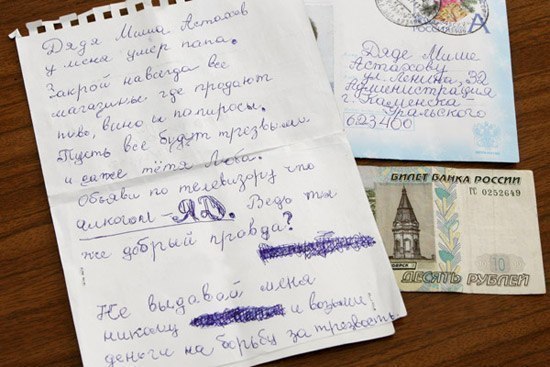 Дядя Миша Астахов
у меня умер папа.
Закрой навсегда все
магазины где продают
пиво, вино и попиросы.
Пусть все будут трезвыми
и даже тётя Люба.
Объяви по телевизору что
алкоголь – ЯД. Ведь ты
же добрый правда?
Не выдавай меня
никому и возьми
деньги на борьбу за трезвость
Дяде Мише
Астахову
ул. Ленина, 32
Администрация
г. Каменска
Уральского
623400
А
БИЛЕТ БАНКА РОССИИ
ГС 0252649
10
ДЕСЯТЬ РУБЛЕЙ